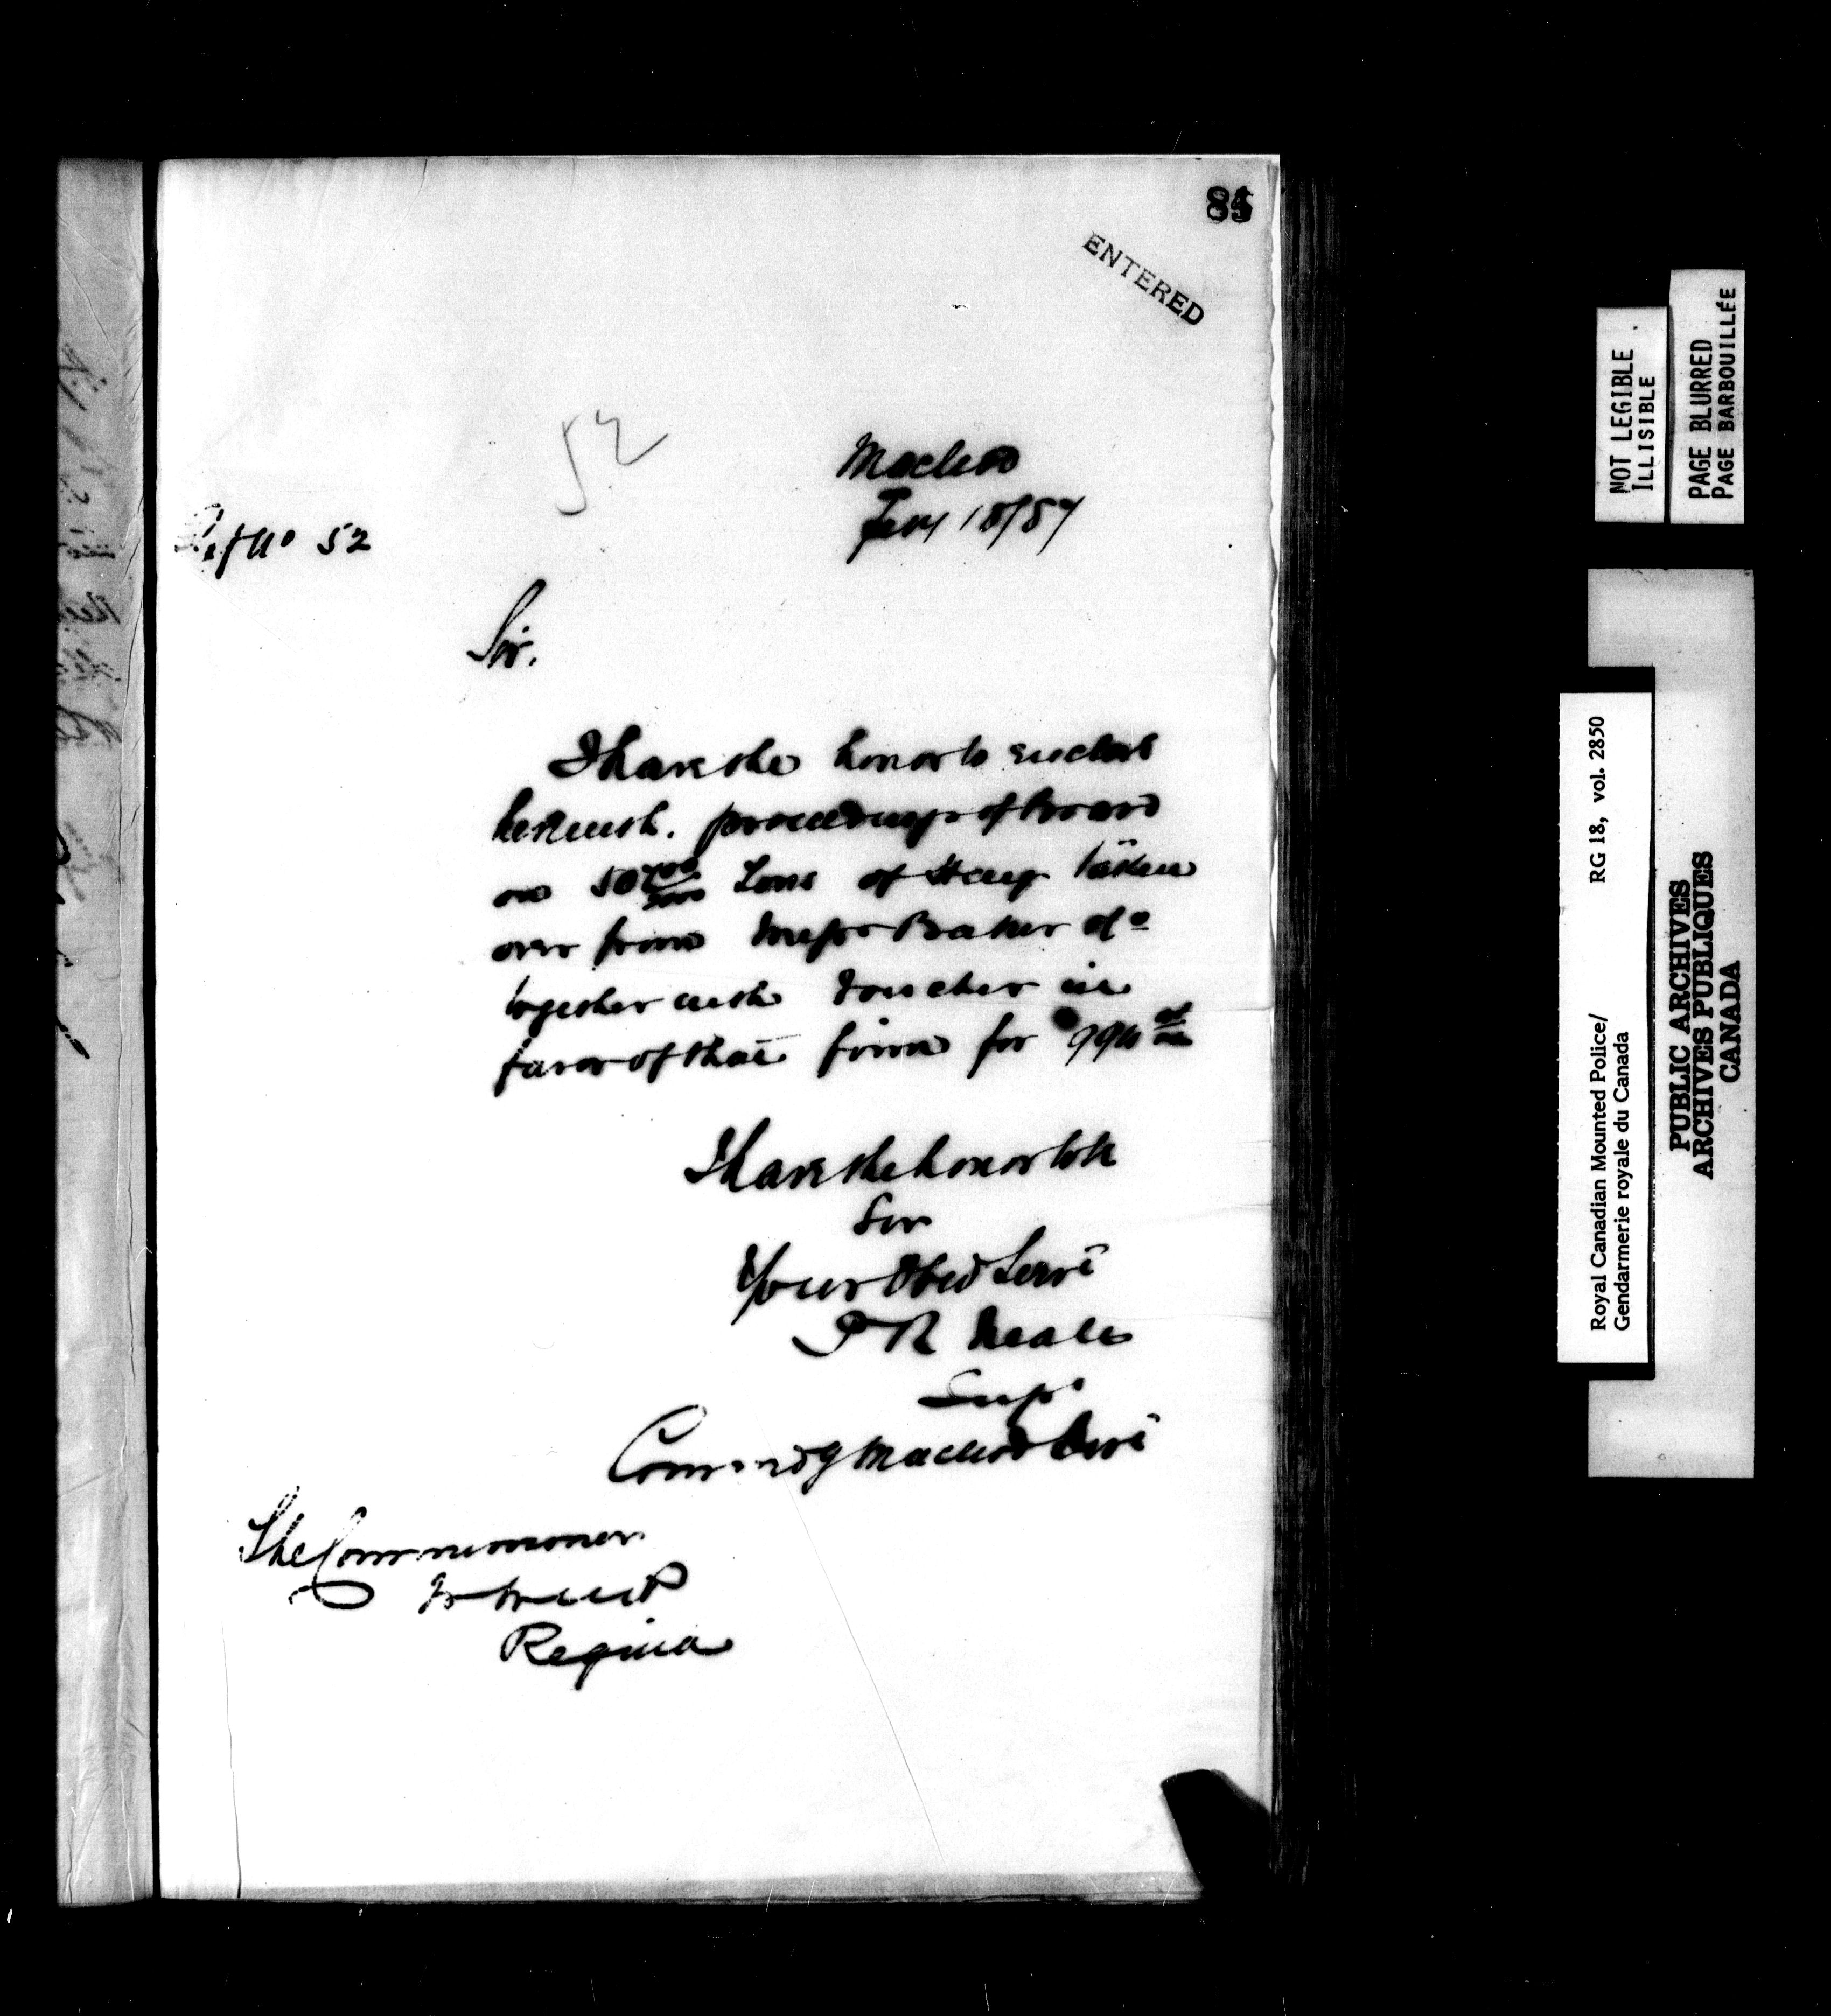 85
ENTERED
52
Macleod
Jany 18/87
Ref No 52
Sir.
I have the honor to enclose
herewith. proceedings of Board
on 50 Tons of Hay taken
over from Messrs Baker &
together with voucher in
favor of that firm for
I have the honor to be
Sir
Your Obed Servt
P R Neale
Supt
Commdg Macleod Dist
The Commissioner
N W M P
Regina
NOT LEGIBLE
ILLISIBLE
PAGE BLURRED
PAGE BARBOUILLÉE
Royal Canadian Mounted Police/ RG 18, vol. 2850
Gendarmerie royale du Canada
PUBLIC ARCHIVES
ARCHIVES PUBLIQUES
CANADA